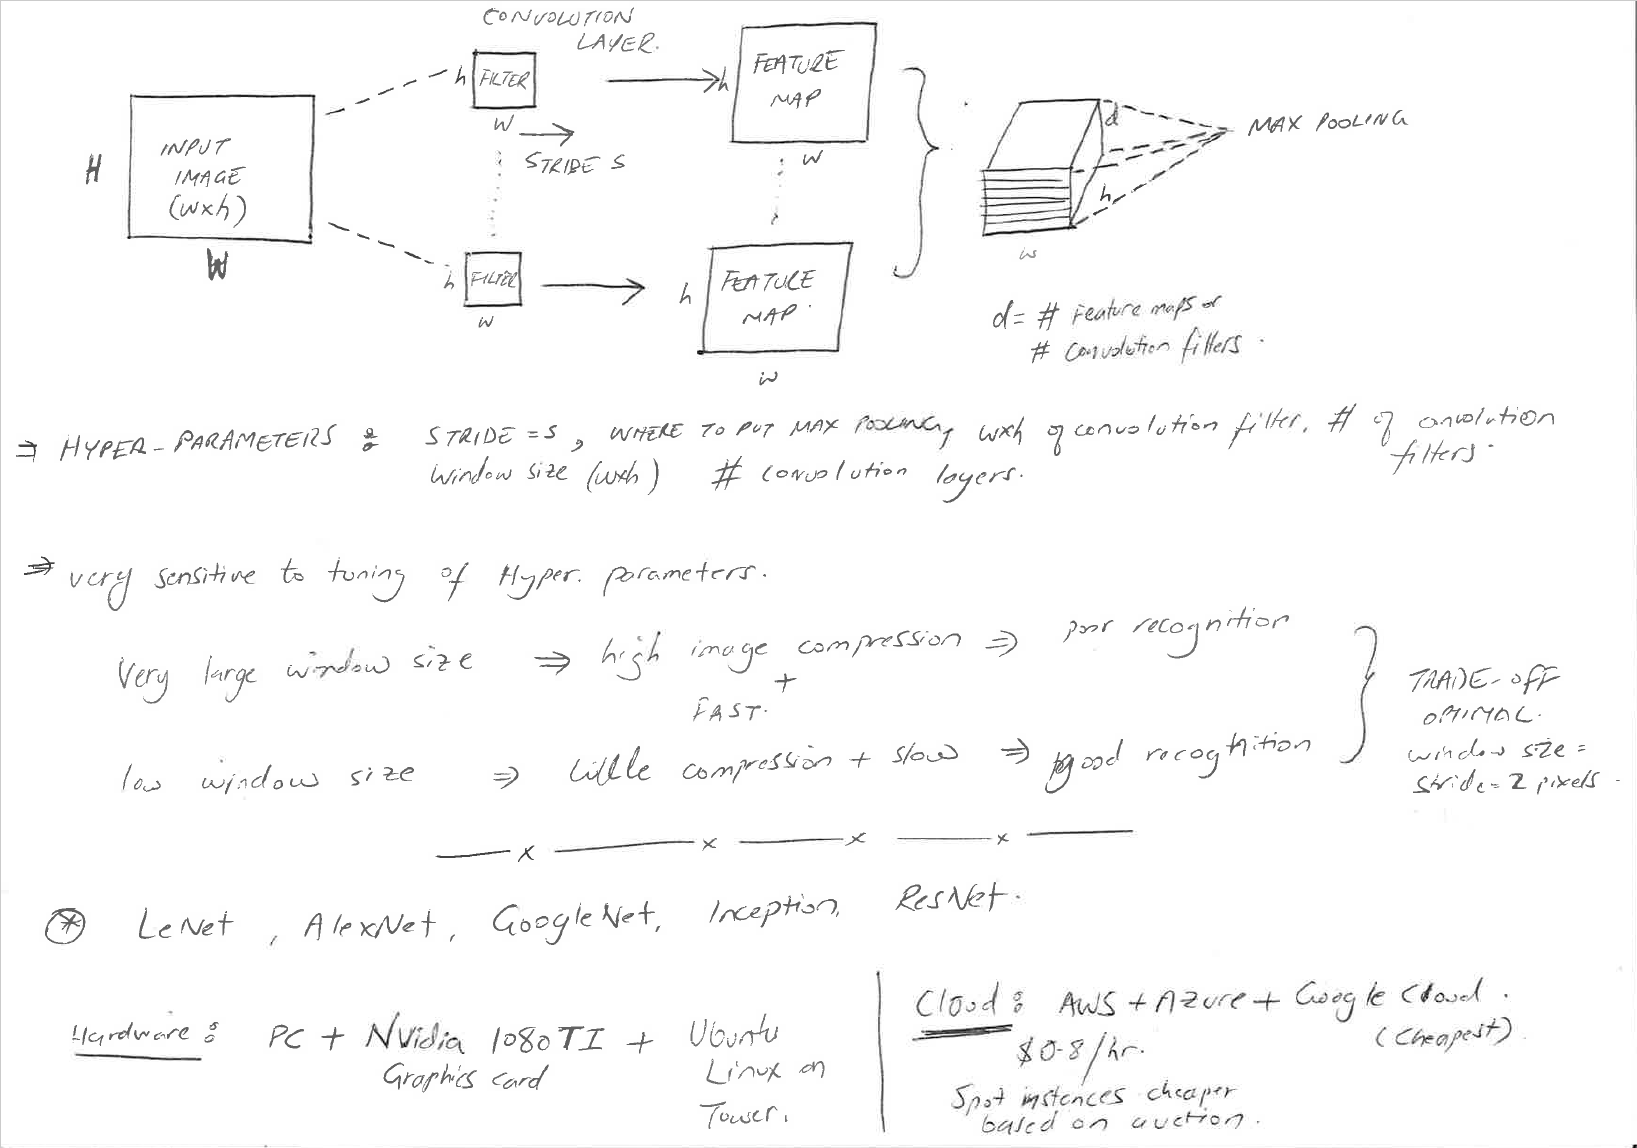 CONVOLUTION
LAYER.
H
INPUT
IMAGE
(wxh)
W
h FILTER
w
STRIDE S
h FILTER
w
h FEATURE
MAP
w
h FEATURE
MAP.
w
d
h
w
MAX POOLING
d = # Feature maps or
# convolution filters.
⇒ HYPER-PARAMETERS : STRIDE = S, WHERE TO PUT MAX POOLING, wxh of convolution filter, # of convolution
filters.
Window size (wxh) # convolution layers.
⇒ very sensitive to tuning of Hyper. parameters.
Very large window size ⇒ high image compression ⇒ poor recognition
+
FAST.
low window size ⇒ little compression + slow ⇒ good recognition
TRADE-OFF
OPTIMAL.
window size =
stride = 2 pixels.
x x x x
* LeNet, AlexNet, GoogleNet, Inception, ResNet.
Hardware : PC + Nvidia 1080TI + Ubuntu
Graphics card Linux on
Tower.
Cloud : AWS + Azure + Google Cloud.
(Cheapest)
$0.8/hr.
Spot instances cheaper
based on auction.